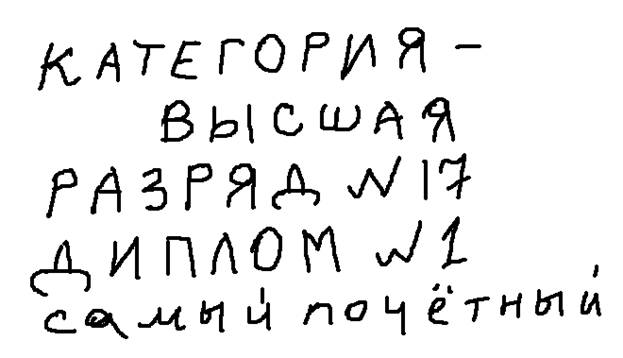 КАТЕГОРИЯ -
ВЫСШАЯ
РАЗРЯД N 17
ДИПЛОМ N 1
самый почётный